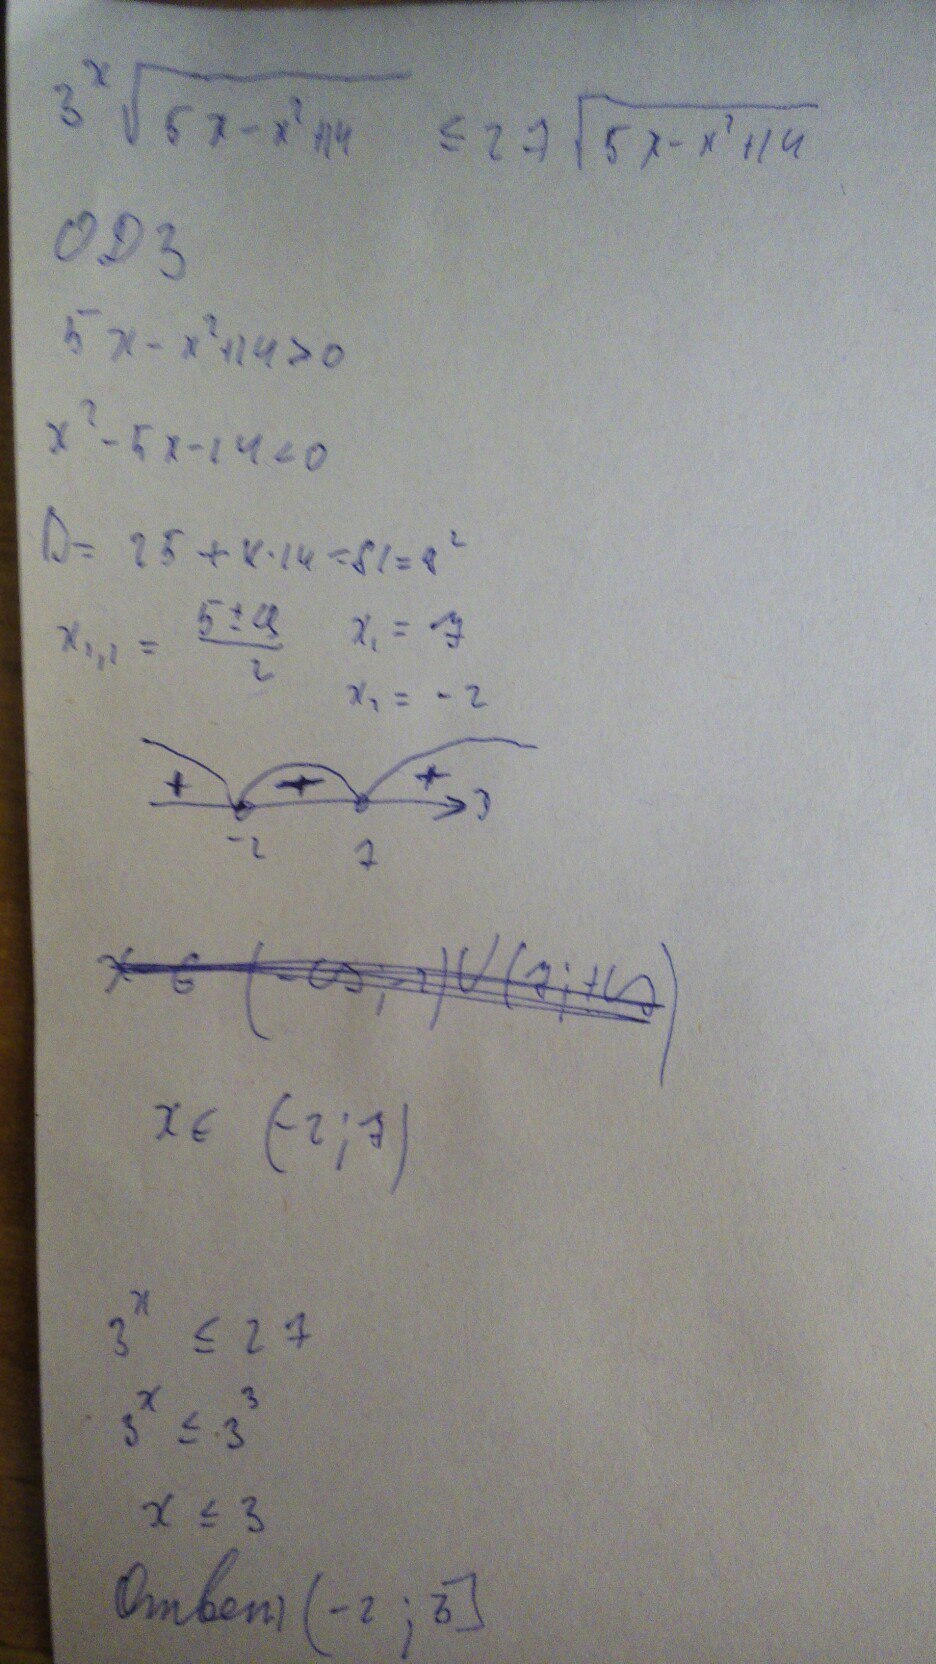 3^x √(5x-x²+14) ≤ 27 √(5x-x²+14)
ОДЗ
5x-x²+14>0
x²-5x-14<0
D= 25+4·14=81=9²
x₁,₂ = (5±9)/2 x₁ = 7
x₂ = -2
+ + +
-2 7
x ∈ (-∞;-2)∪(7;+∞)
x ∈ (-2;7)
3^x ≤ 27
3^x ≤ 3³
x ≤ 3
Ответ (-2;3]